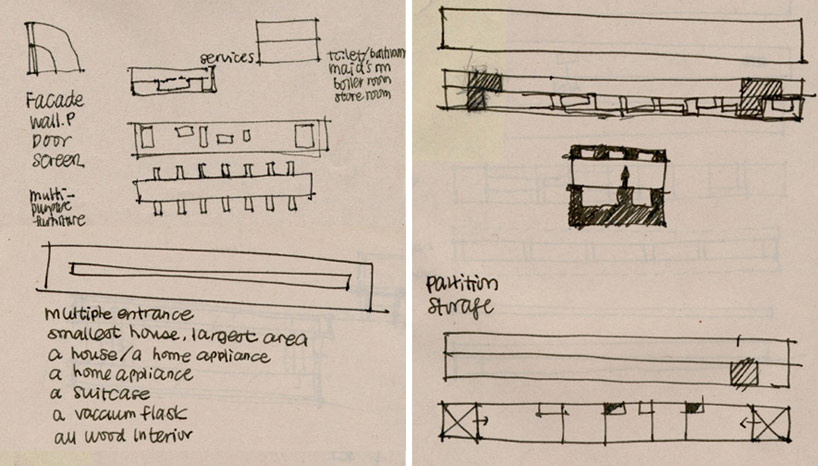 services
toilet/bathroom
maid's rm
boiler room
store room
Facade
wall.P
Door
screen
multi-
purpose
furniture
multiple entrance
smallest house, largest area
a house/a home appliance
a home appliance
a suitcase
a vacuum flask
all wood interior
partition
storage